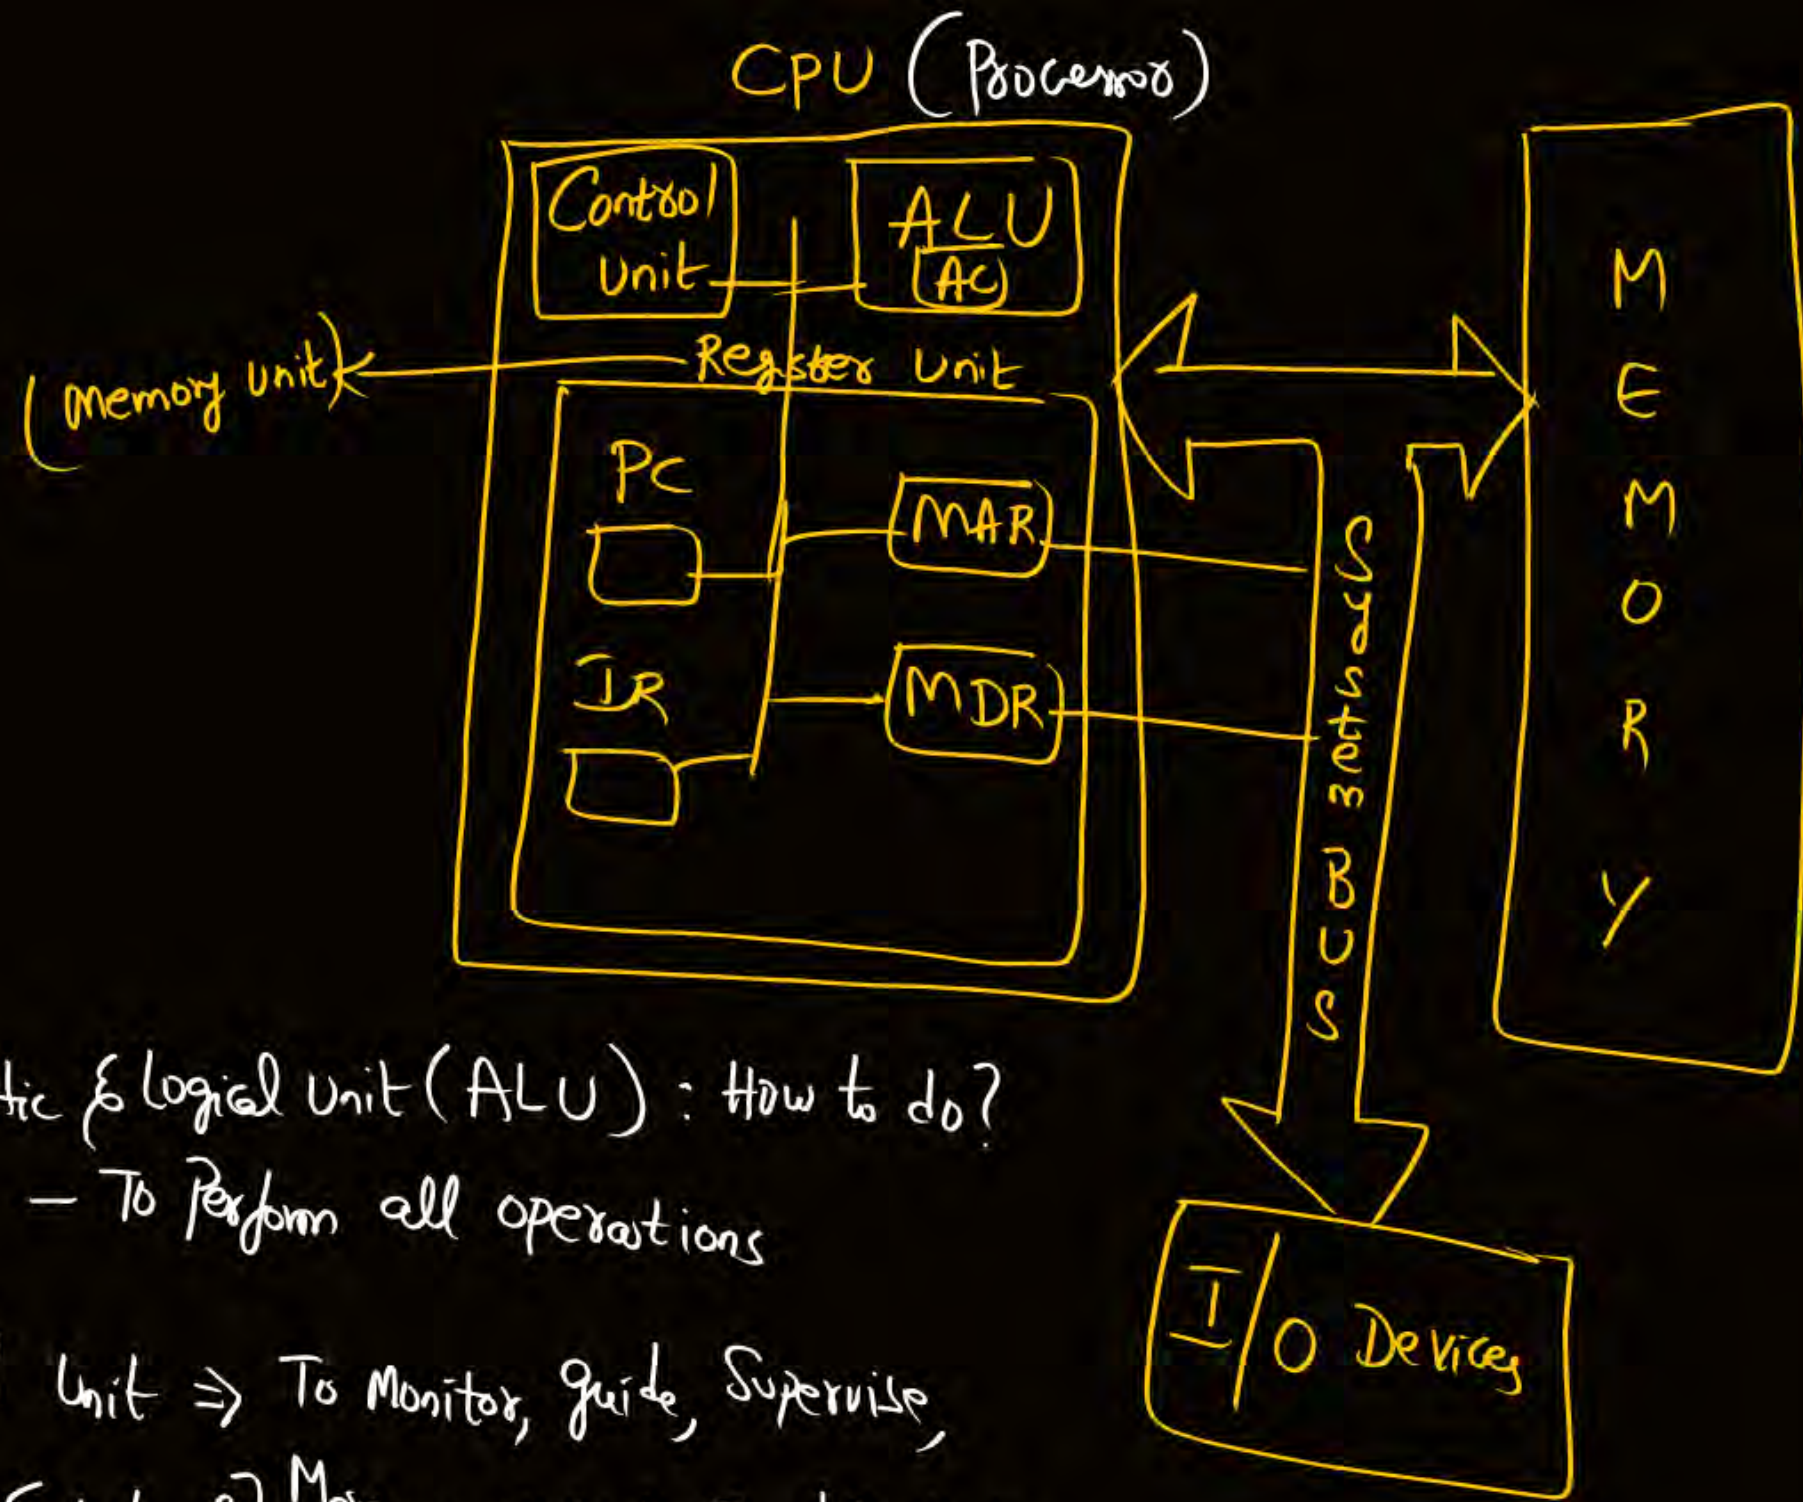 CPU (Processor)
Control
Unit
ALU
AC
(Memory Unit)
Register Unit
PC
MAR
IR
MDR
System BUS
MEMORY
tic & Logical Unit (ALU) : How to do?
- To Perform all operations
Unit ⇒ To Monitor, guide, Supervise,
I/O Devices